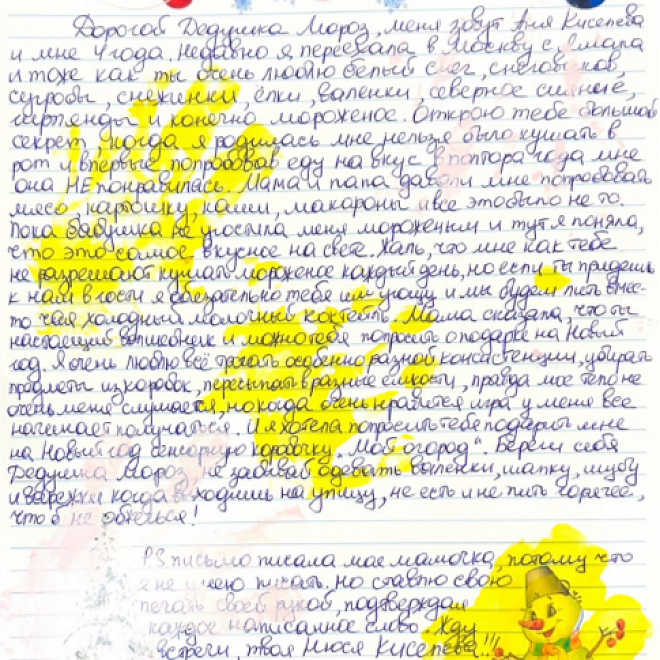 Дорогой Дедушка Мороз, меня зовут Аня Киселева
и мне 4 года. Недавно я переехала в Москву с
и тоже как ты очень люблю белый снег, снеговиков,
сугробы, снежинки, ёлки, валенки, северное сияние,
гирлянды и конечно мороженое. Открою тебе большой
секрет, когда я родилась мне нельзя было кушать в
рот и впервые попробовав еду на вкус в полтора года мне
она НЕ понравилась. Мама и папа давали мне попробовать
мясо, картошку, каши, макароны и все это было не то.
Пока бабушка не угостила меня мороженым и тут я поняла,
что это самое вкусное на свете. Жаль, что мне как тебе
не разрешают кушать мороженое каждый день, но если ты придешь
к нам в гости я обязательно тебя им угощу и мы будем пить вмес-
то чая холодный молочный коктейль. Мама сказала, что ты
настоящий волшебник и можно тебя попросить о подарке на Новый
год. Я очень люблю всё трогать особенно разной консистенции, убирать
предметы из коробок, пересыпать в разные ёмкости, правда мое тело не
очень меня слушается, но когда очень нравится игра у меня все
начинает получаться. И я хотела попросить тебя подарить мне
на Новый год сенсорную коробочку "Мой огород". Береги себя
Дедушка Мороз, не забывай одевать валенки, шапку, шубу
и варежки когда выходишь на улицу, не есть и не пить горячее,
чтоб не обжечься!
PS письмо писала моя мамочка, потому что
я не умею писать, но ставлю свою
печать своей рукой, подтверждая
каждое написанное слово. Жду
встречи, твоя Нюся Киселева!!!